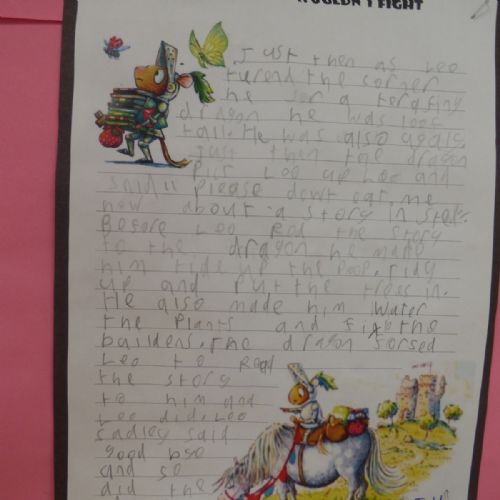 N'T FIGHT
Just then as Leo
turend the corner
he sor a
dragon he was
tall. He was also
just then the dragon
Pict Leo up Leo and
said " please dowt eat me
how about a story in
Before Leo Rod the story
to the dragon he made
him tide up the tidy
up and Put the trees in.
He also made him Water
the Plants and fix the
baildens. The dragon forsed
Leo to Read
the story
to him and
Leo did. Leo
sadley said
good bye
and so
did the